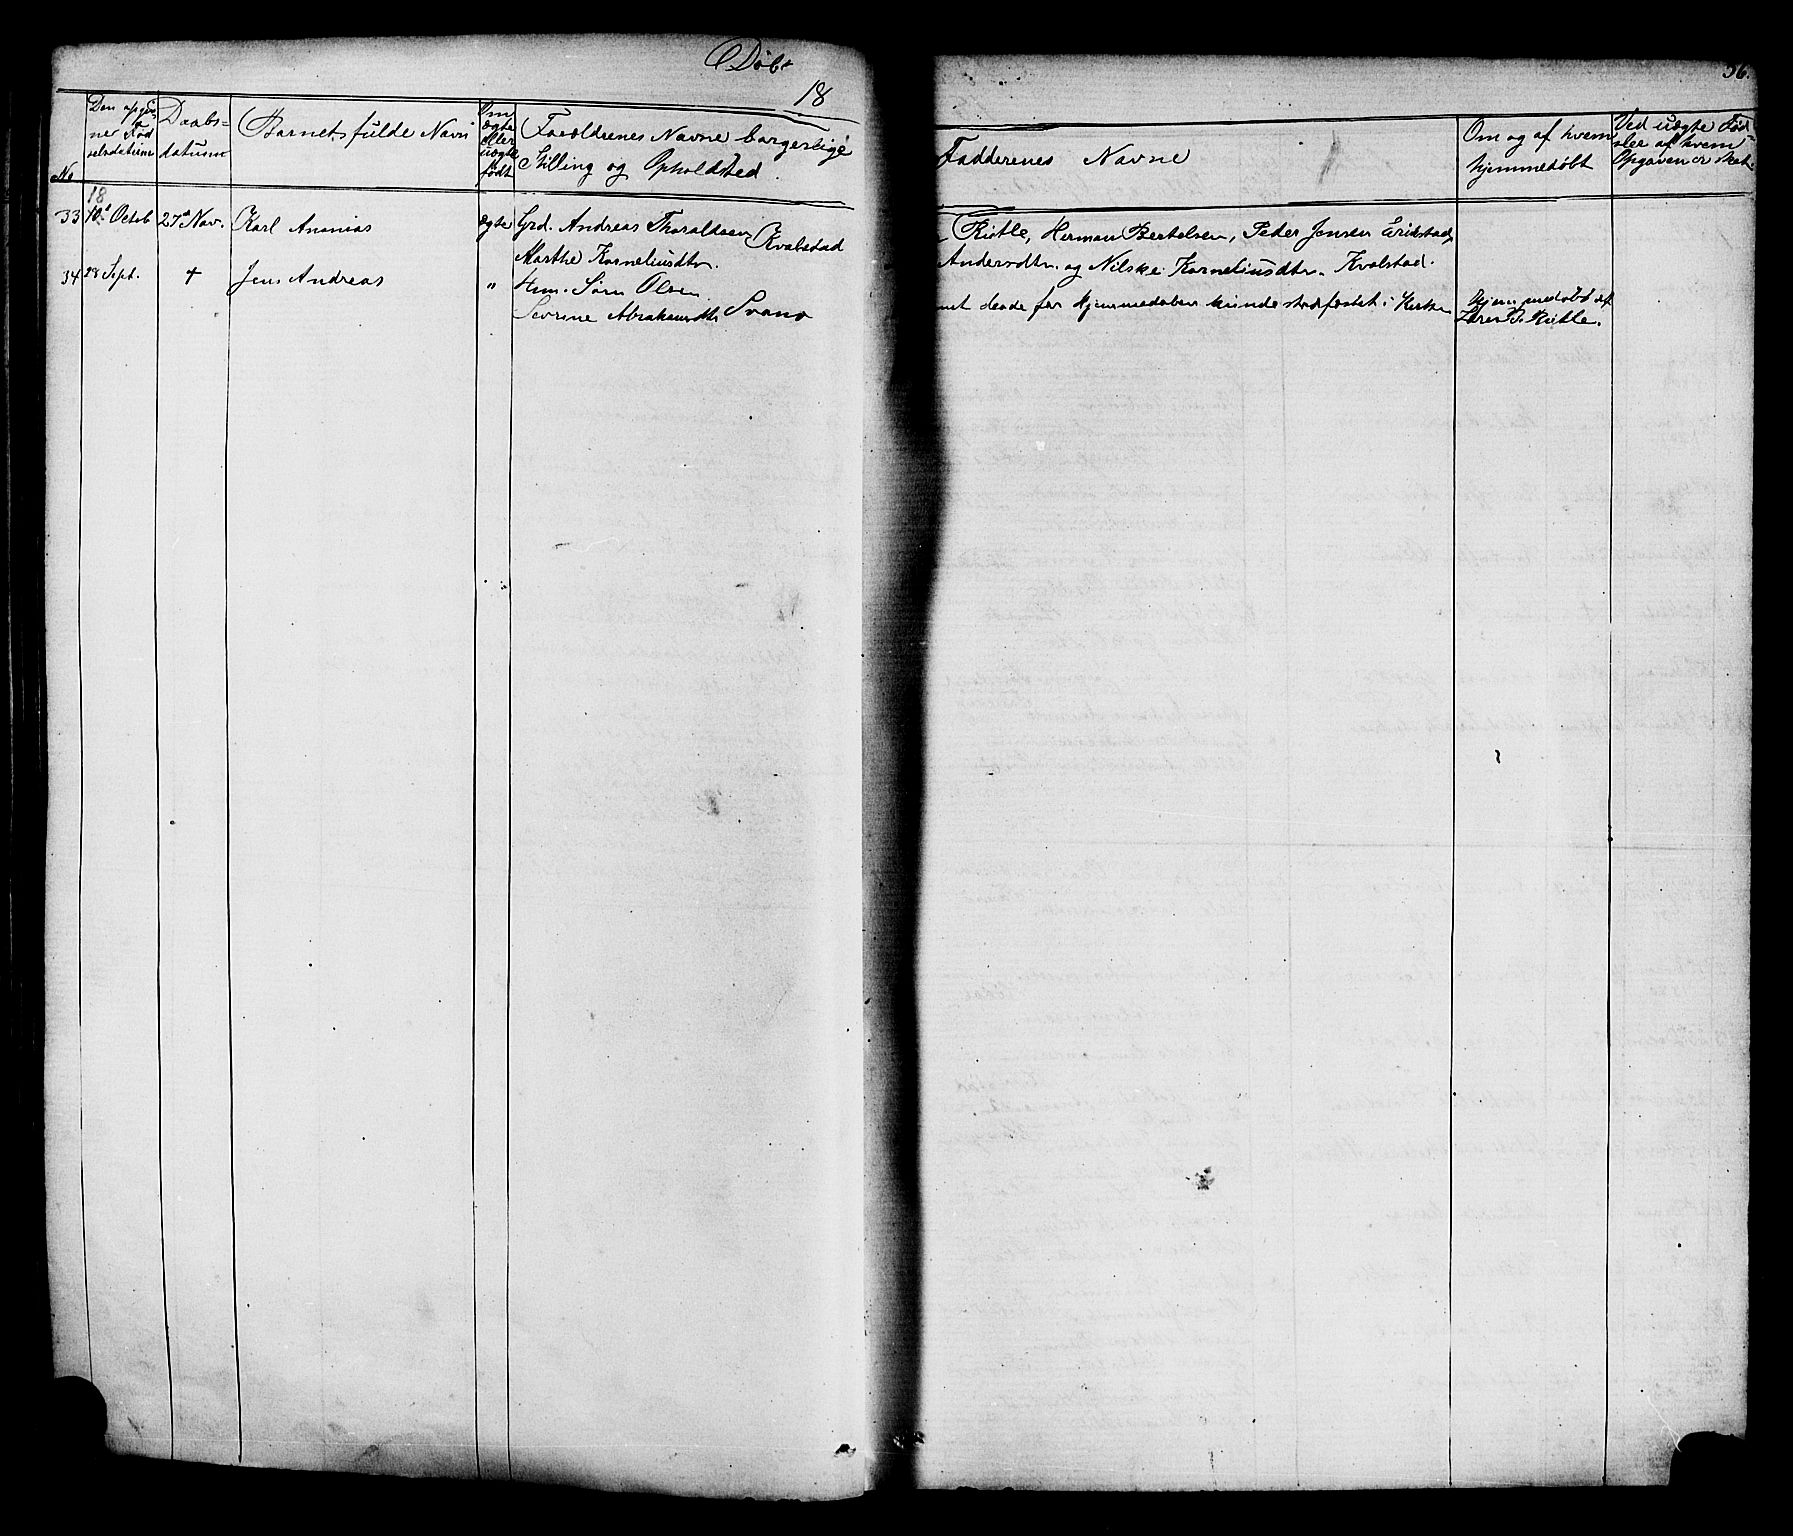 Døbt
18
56.
No
Den opgiv-
ne Fød
selsdatum
Daabs-
datum
Barnets fulde Navn
Om
ægte
eller
uægte
født
Forældrenes Navne borgerlige
Stilling og Opholdsted.
Fadderenes Navne
Om og af hvem
hjemmedøbt
Ved uægte Fød-
sler af hvem
Opgaven er skeet.
18
33 10d Octob 27d Nav. Karl Ananias ægte Grd. Andreas Thoraldsen Kvalstad
Marthe Korneliusdtr.
Rutle, Herman Bertelsen, Peder Jensen Erikstad,
Andersdtr. og Nilske Korneliusdtr. Kvalstad.
34 28 Sept. + Jens Andreas " Hm. Sørn Olsen
Severine Abrahamsdtr Svanø
døde før Hjemmedaaben kunde stadfæstet i Kirken
Hjemmedøbt af
Lærer B. Rutle.